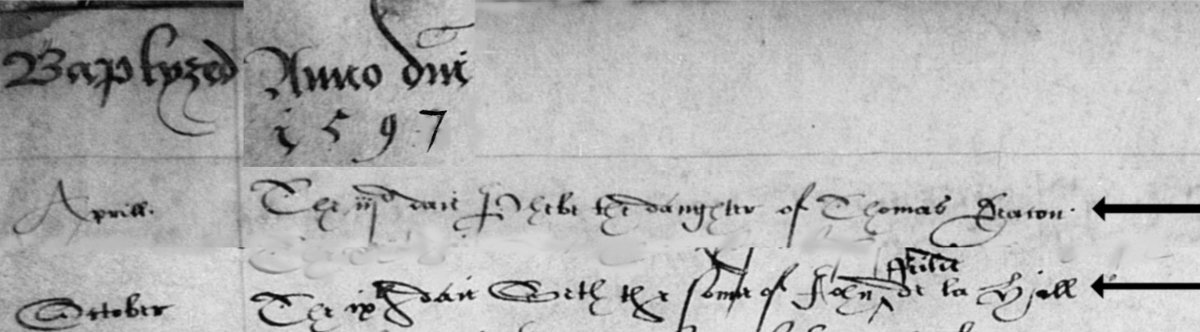 Baptyzed Anno dni
1597
Aprill. The iijd daie Phebe the daughter of Thomas Deacon.
October The ixth daie Seth the sonne of John de la Hyall